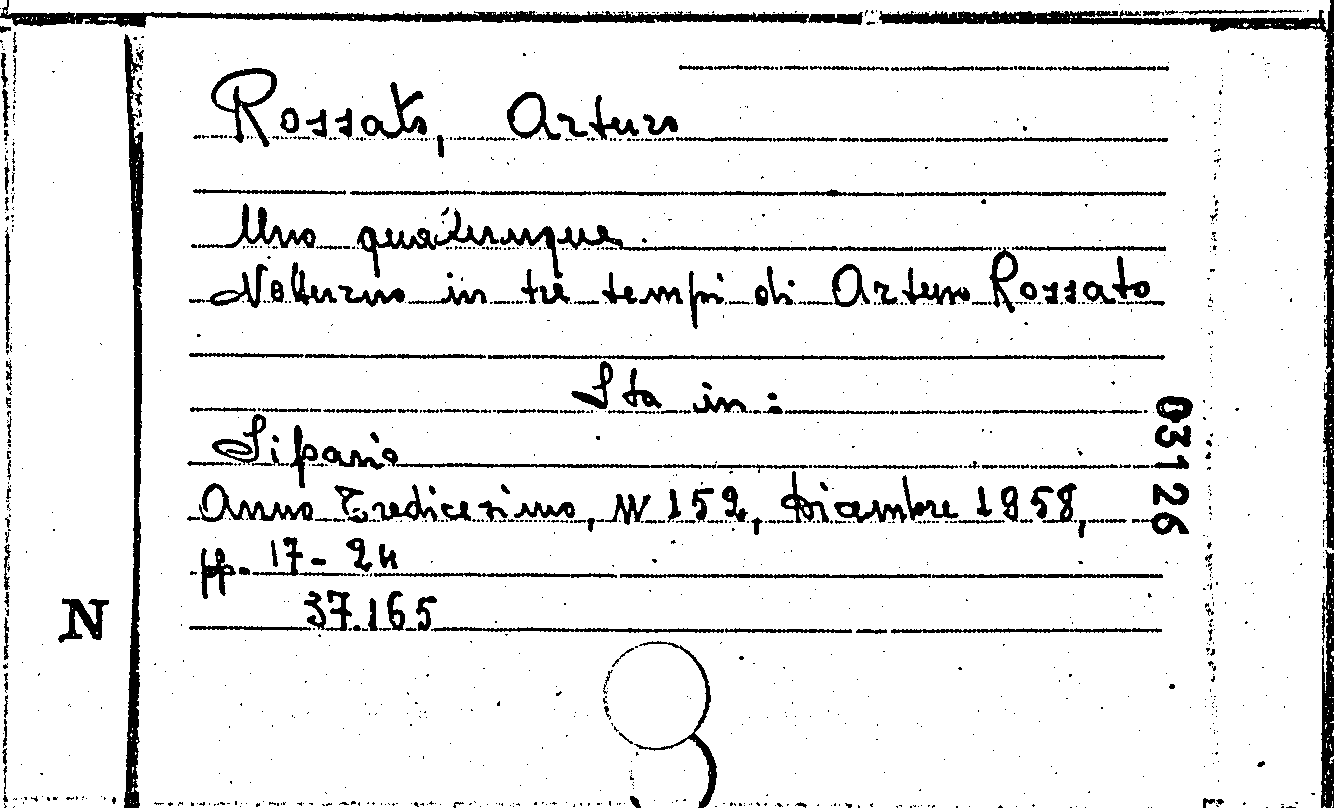 Rossato, Arturo
Uno qualunque.
Notturno in tre tempi di Arturo Rossato
Sta in:
Sipario
Anno Tredicesimo, N 152, Dicembre 1958,
pp. 17-24
37.165
03126
N